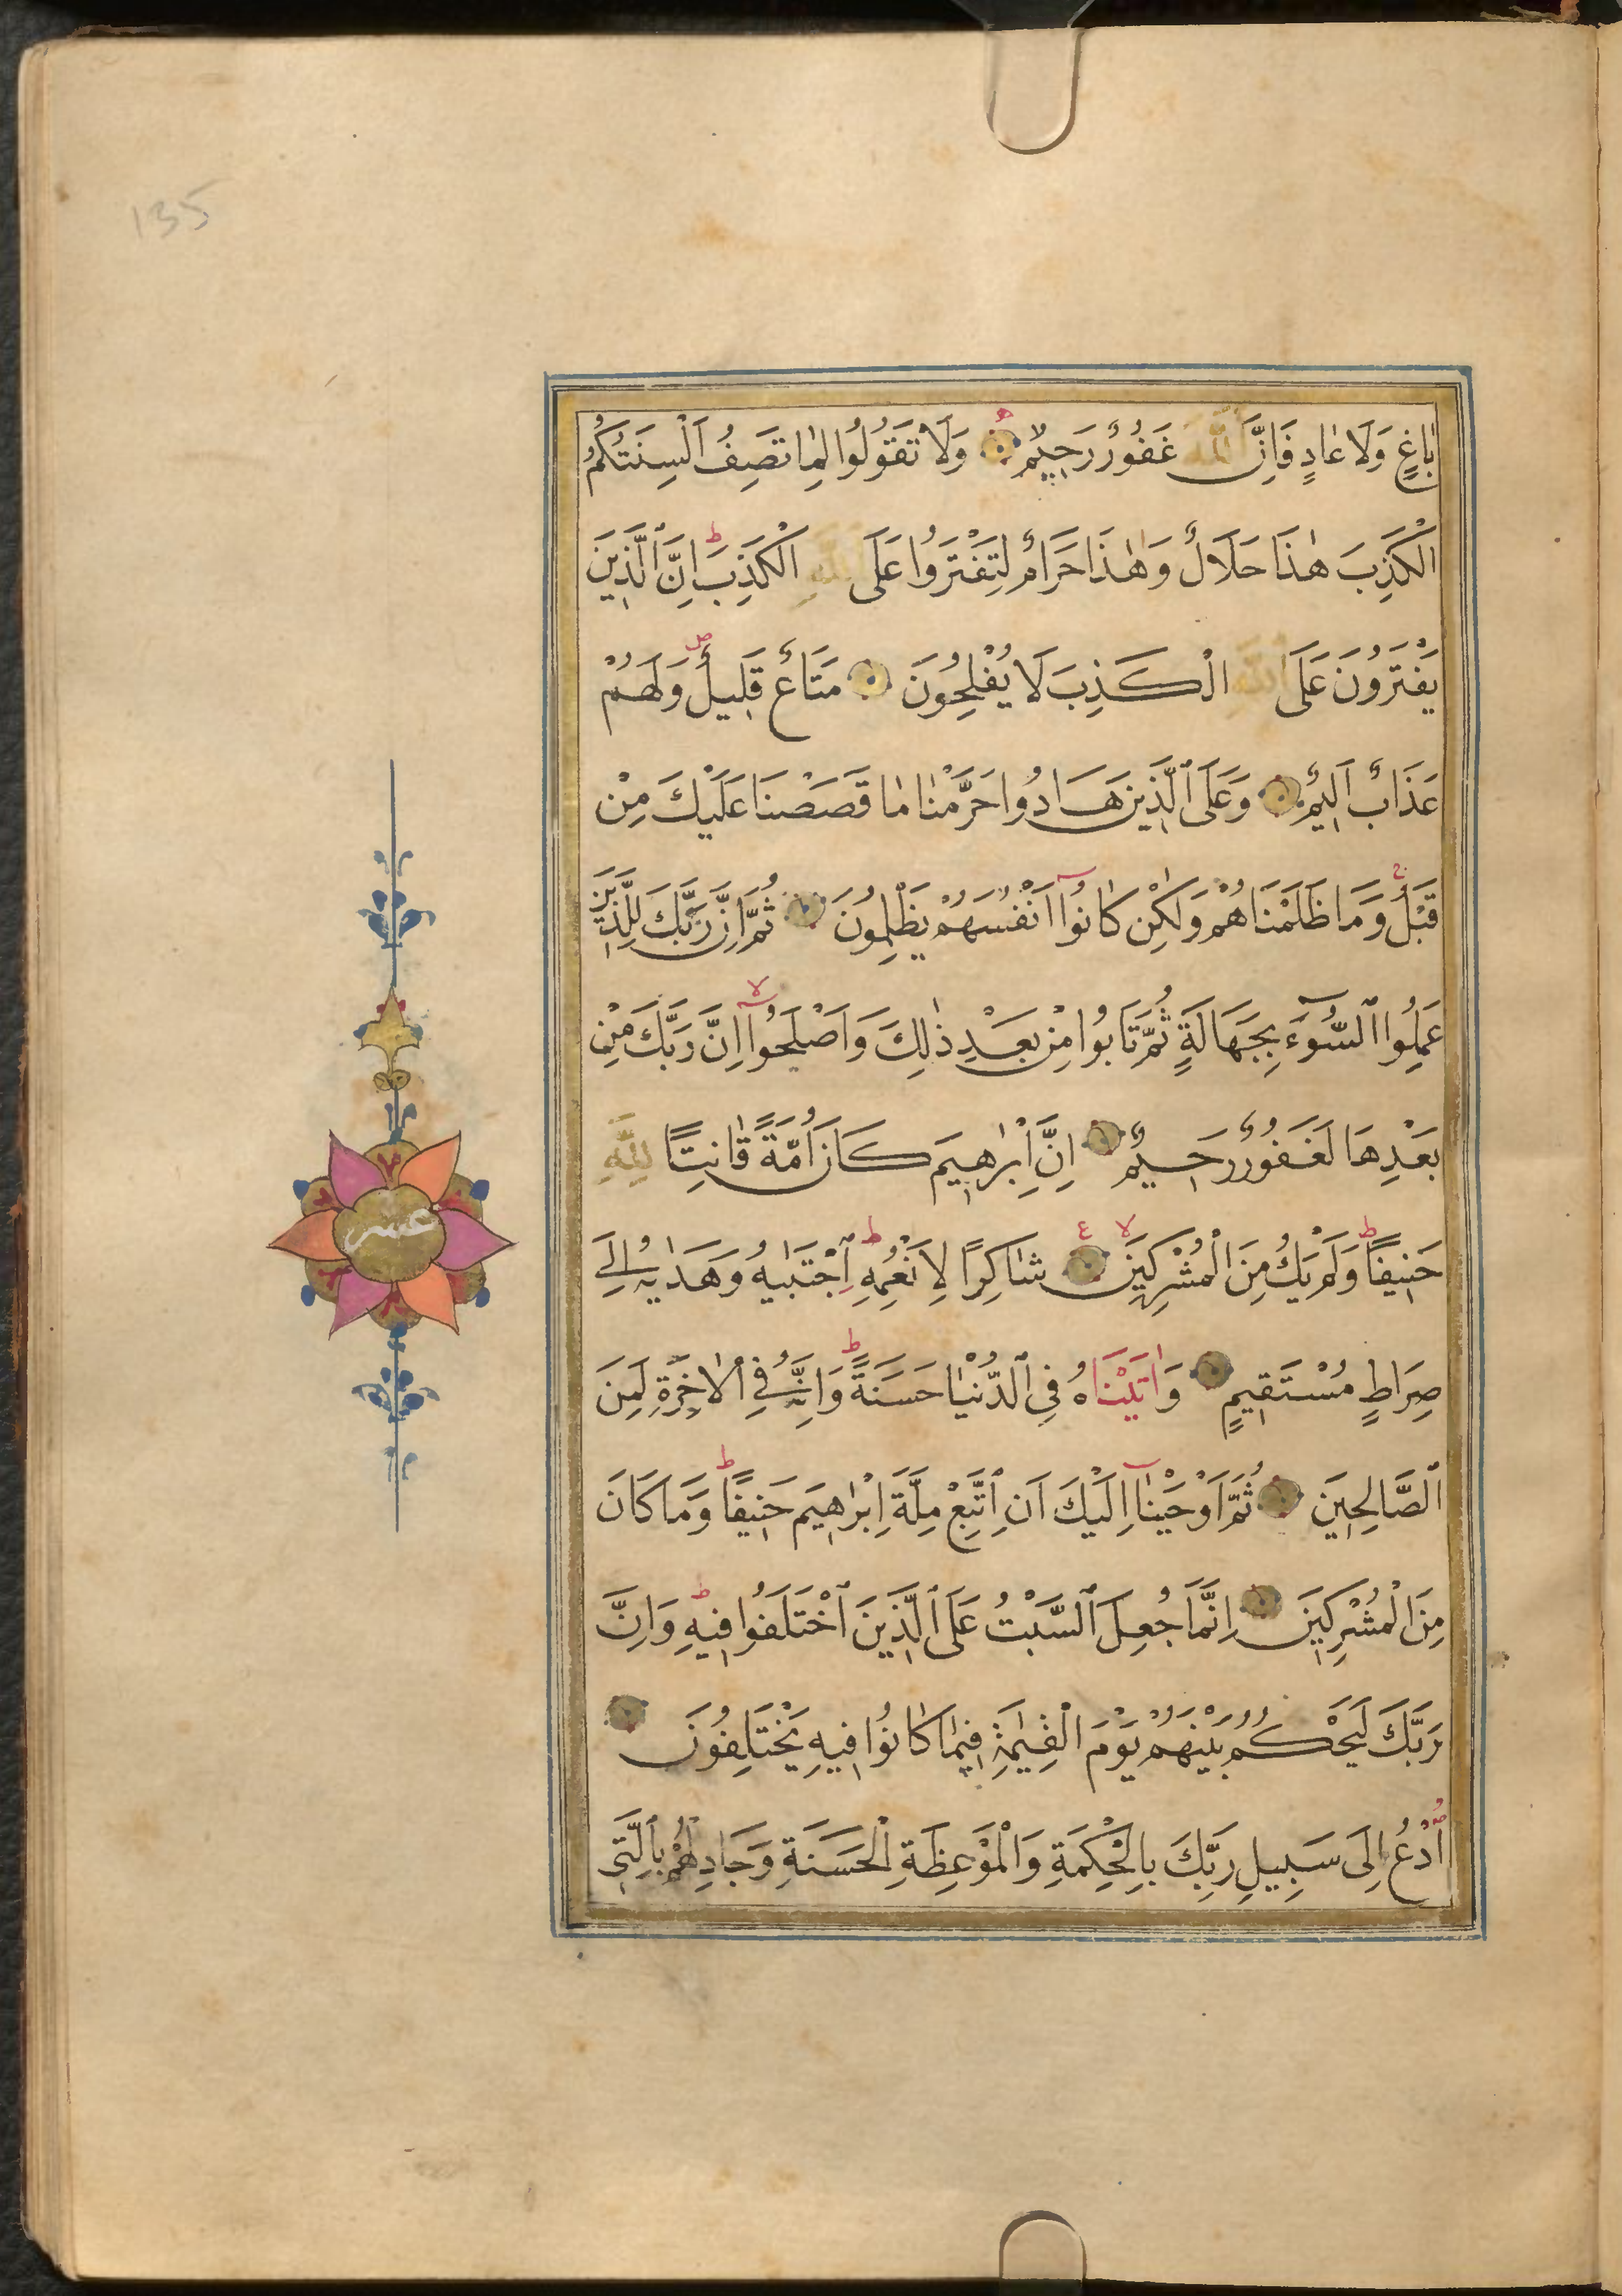 135
بَاغٍ وَلَا عَادٍ فَاِنَّ اللّٰهَ غَفُورٌ رَحِيمٌ وَلَا تَقُولُوا لِمَا تَصِفُ اَلْسِنَتُكُمُ
الْكَذِبَ هٰذَا حَلَالٌ وَهٰذَا حَرَامٌ لِتَفْتَرُوا عَلَى اللّٰهِ الْكَذِبَ اِنَّ الَّذِينَ
يَفْتَرُونَ عَلَى اللّٰهِ الْكَذِبَ لَا يُفْلِحُونَ مَتَاعٌ قَلِيلٌ وَلَهُمْ
عَذَابٌ اَلِيمٌ وَعَلَى الَّذِينَ هَادُوا حَرَّمْنَا مَا قَصَصْنَا عَلَيْكَ مِنْ
قَبْلُ وَمَا ظَلَمْنَاهُمْ وَلٰكِنْ كَانُوا اَنْفُسَهُمْ يَظْلِمُونَ ثُمَّ اِنَّ رَبَّكَ لِلَّذِينَ
عَمِلُوا السُّوٓءَ بِجَهَالَةٍ ثُمَّ تَابُوا مِنْ بَعْدِ ذٰلِكَ وَاَصْلَحُوٓا اِنَّ رَبَّكَ مِنْ
بَعْدِهَا لَغَفُورٌ رَحِيمٌ اِنَّ اِبْرٰهِيمَ كَانَ اُمَّةً قَانِتًا لِلّٰهِ
حَنِيفًا وَلَمْ يَكُ مِنَ الْمُشْرِكِينَ شَاكِرًا لِاَنْعُمِهِ اِجْتَبٰيهُ وَهَدٰيهُ اِلٰى
صِرَاطٍ مُسْتَقِيمٍ وَاٰتَيْنَاهُ فِي الدُّنْيَا حَسَنَةً وَاِنَّهُ فِي الْاٰخِرَةِ لَمِنَ
الصَّالِحِينَ ثُمَّ اَوْحَيْنَآ اِلَيْكَ اَنِ اتَّبِعْ مِلَّةَ اِبْرٰهِيمَ حَنِيفًا وَمَا كَانَ
مِنَ الْمُشْرِكِينَ اِنَّمَا جُعِلَ السَّبْتُ عَلَى الَّذِينَ اخْتَلَفُوا فِيهِ وَاِنَّ
رَبَّكَ لَيَحْكُمُ بَيْنَهُمْ يَوْمَ الْقِيٰمَةِ فِيمَا كَانُوا فِيهِ يَخْتَلِفُونَ
اُدْعُ اِلَى سَبِيلِ رَبِّكَ بِالْحِكْمَةِ وَالْمَوْعِظَةِ الْحَسَنَةِ وَجَادِلْهُمْ بِالَّتِي
عشر